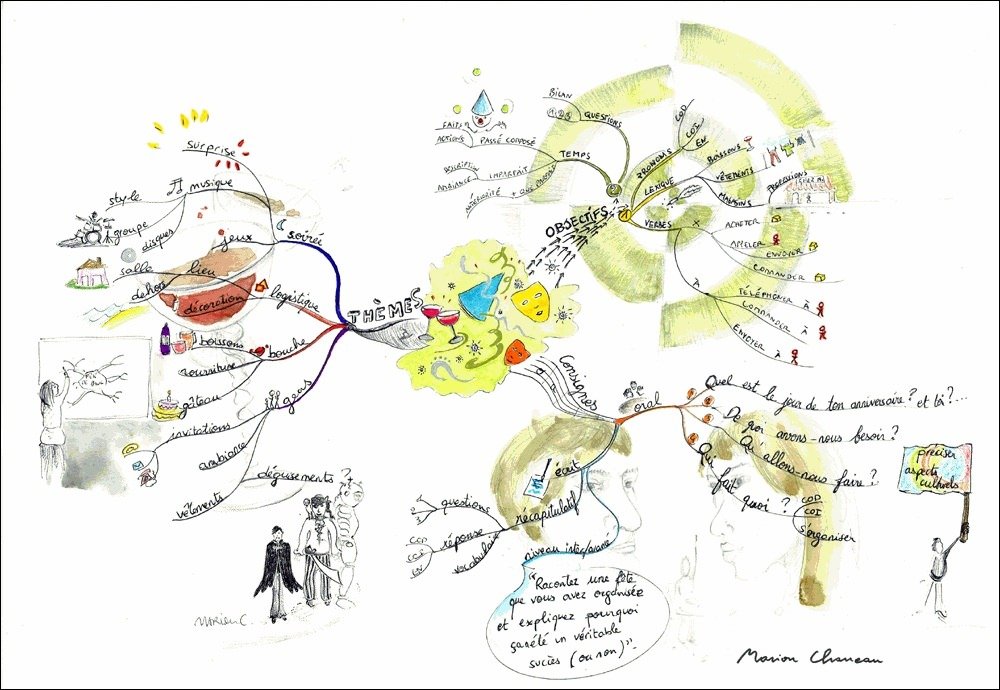 THÈMES
soirée
surprise
musique
style
groupe
disques
jeux
logistique
lieu
salle
dehors
décoration
bouche
boissons
nourriture
gâteau
gens
invitations
ambiance
vêtements
déguisements ?
MARION C.
OBJECTIFS
QUESTIONS
BILAN
1 2 3
TEMPS
PASSÉ COMPOSÉ
FAITS
ACTIONS
IMPARFAIT
DESCRIPTION
AMBIANCE
+ QUE PARFAIT
ANTÉRIORITÉ
PRONOMS
COD
COI
EN
LEXIQUE
BOISSONS
VÊTEMENTS
MAGASINS
PROFESSIONS
VERBES
X
ACHETER
APPELER
ENVOYER
COMMANDER
À
TÉLÉPHONER À
COMMANDER À
ENVOYER À
Consignes
oral
Quel est le jour de ton anniversaire ? et toi ?...
De quoi avons-nous besoin ?
Qu'allons-nous faire ?
Qui fait quoi ?
COD
COI
s'organiser
préciser
aspects
culturels
écrit
récapitulatif
questions
réponse
COD
COI
vocabulaire
"Racontez une fête
que vous avez organisée
et expliquez pourquoi
ça a été un véritable
succès (ou non)".
Marion Charreau